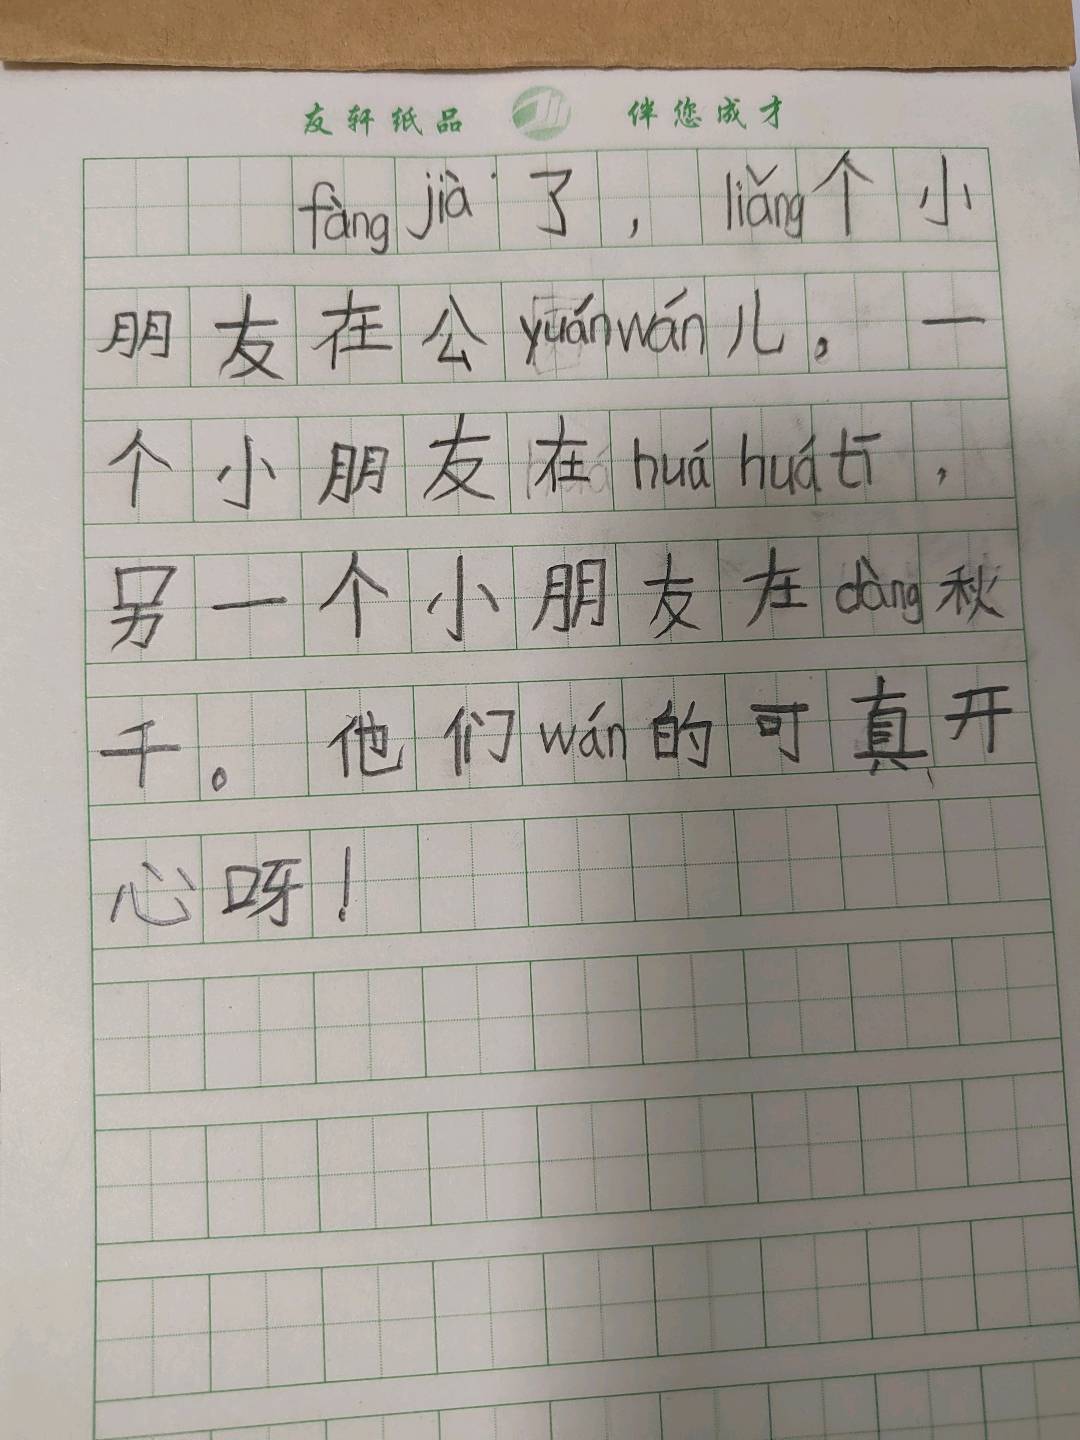 友轩纸品 伴您成才
fàng jià 了，liǎng 个小
朋友在公 yuán wán 儿。一
个小朋友在 huá huá tī，
另一个小朋友在 dàng 秋
千。他们 wán 的可真开
心呀！